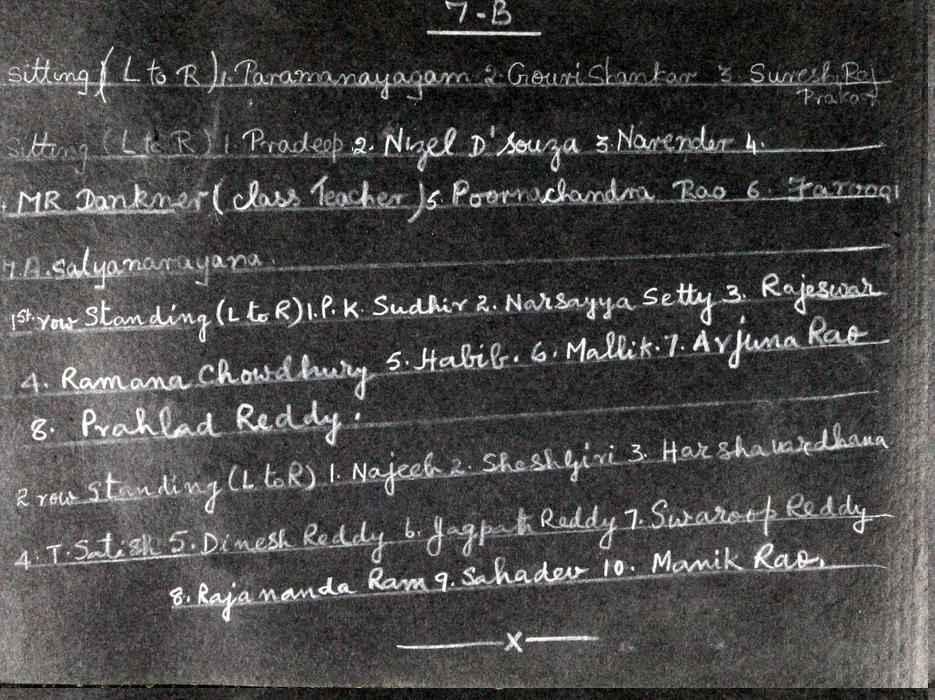 7-B
Sitting (L to R) 1. Paramanayagam 2. Gouri Shankar 3 Suresh Raj
Prakash
Sitting (L to R) 1. Pradeep 2. Nizel D'souza 3. Narender 4.
MR Dankner (class Teacher) 5. Poornachandra Rao 6. Farooqi
7. A. Satyanarayana.
1st row Standing (L to R) 1. P. K. Sudhir 2. Narsayya Setty 3. Rajeswar
4. Ramana Chowdhury 5. Habib. 6. Mallik. 7. Arjuna Rao
8. Prahlad Reddy.
2 row Standing (L to R) 1. Najeeb 2. Sheshgiri 3. Harshavardhana
4. T. Satish 5. Dinesh Reddy 6. Jagpath Reddy 7. Swaroop Reddy
8. Rajananda Ram 9. Sahadev 10. Manik Rao.
—x—